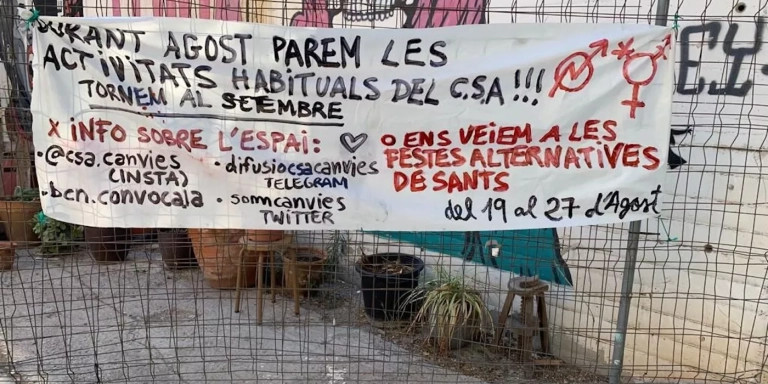 DURANT AGOST PAREM LES
ACTIVITATS HABITUALS DEL C.S.A !!!
TORNEM AL SETEMBRE
X iNFO SOBRE L'ESPAi:
• @csa.canvies
(INSTA)
• bcn.convocala
• difusiocsacanvies
TELEGRAM
• somncanvies
TWITTER
O ENS VEiEM A LES
FESTES ALTERNATiVES
DE SANTS
del 19 al 27 d'Agost